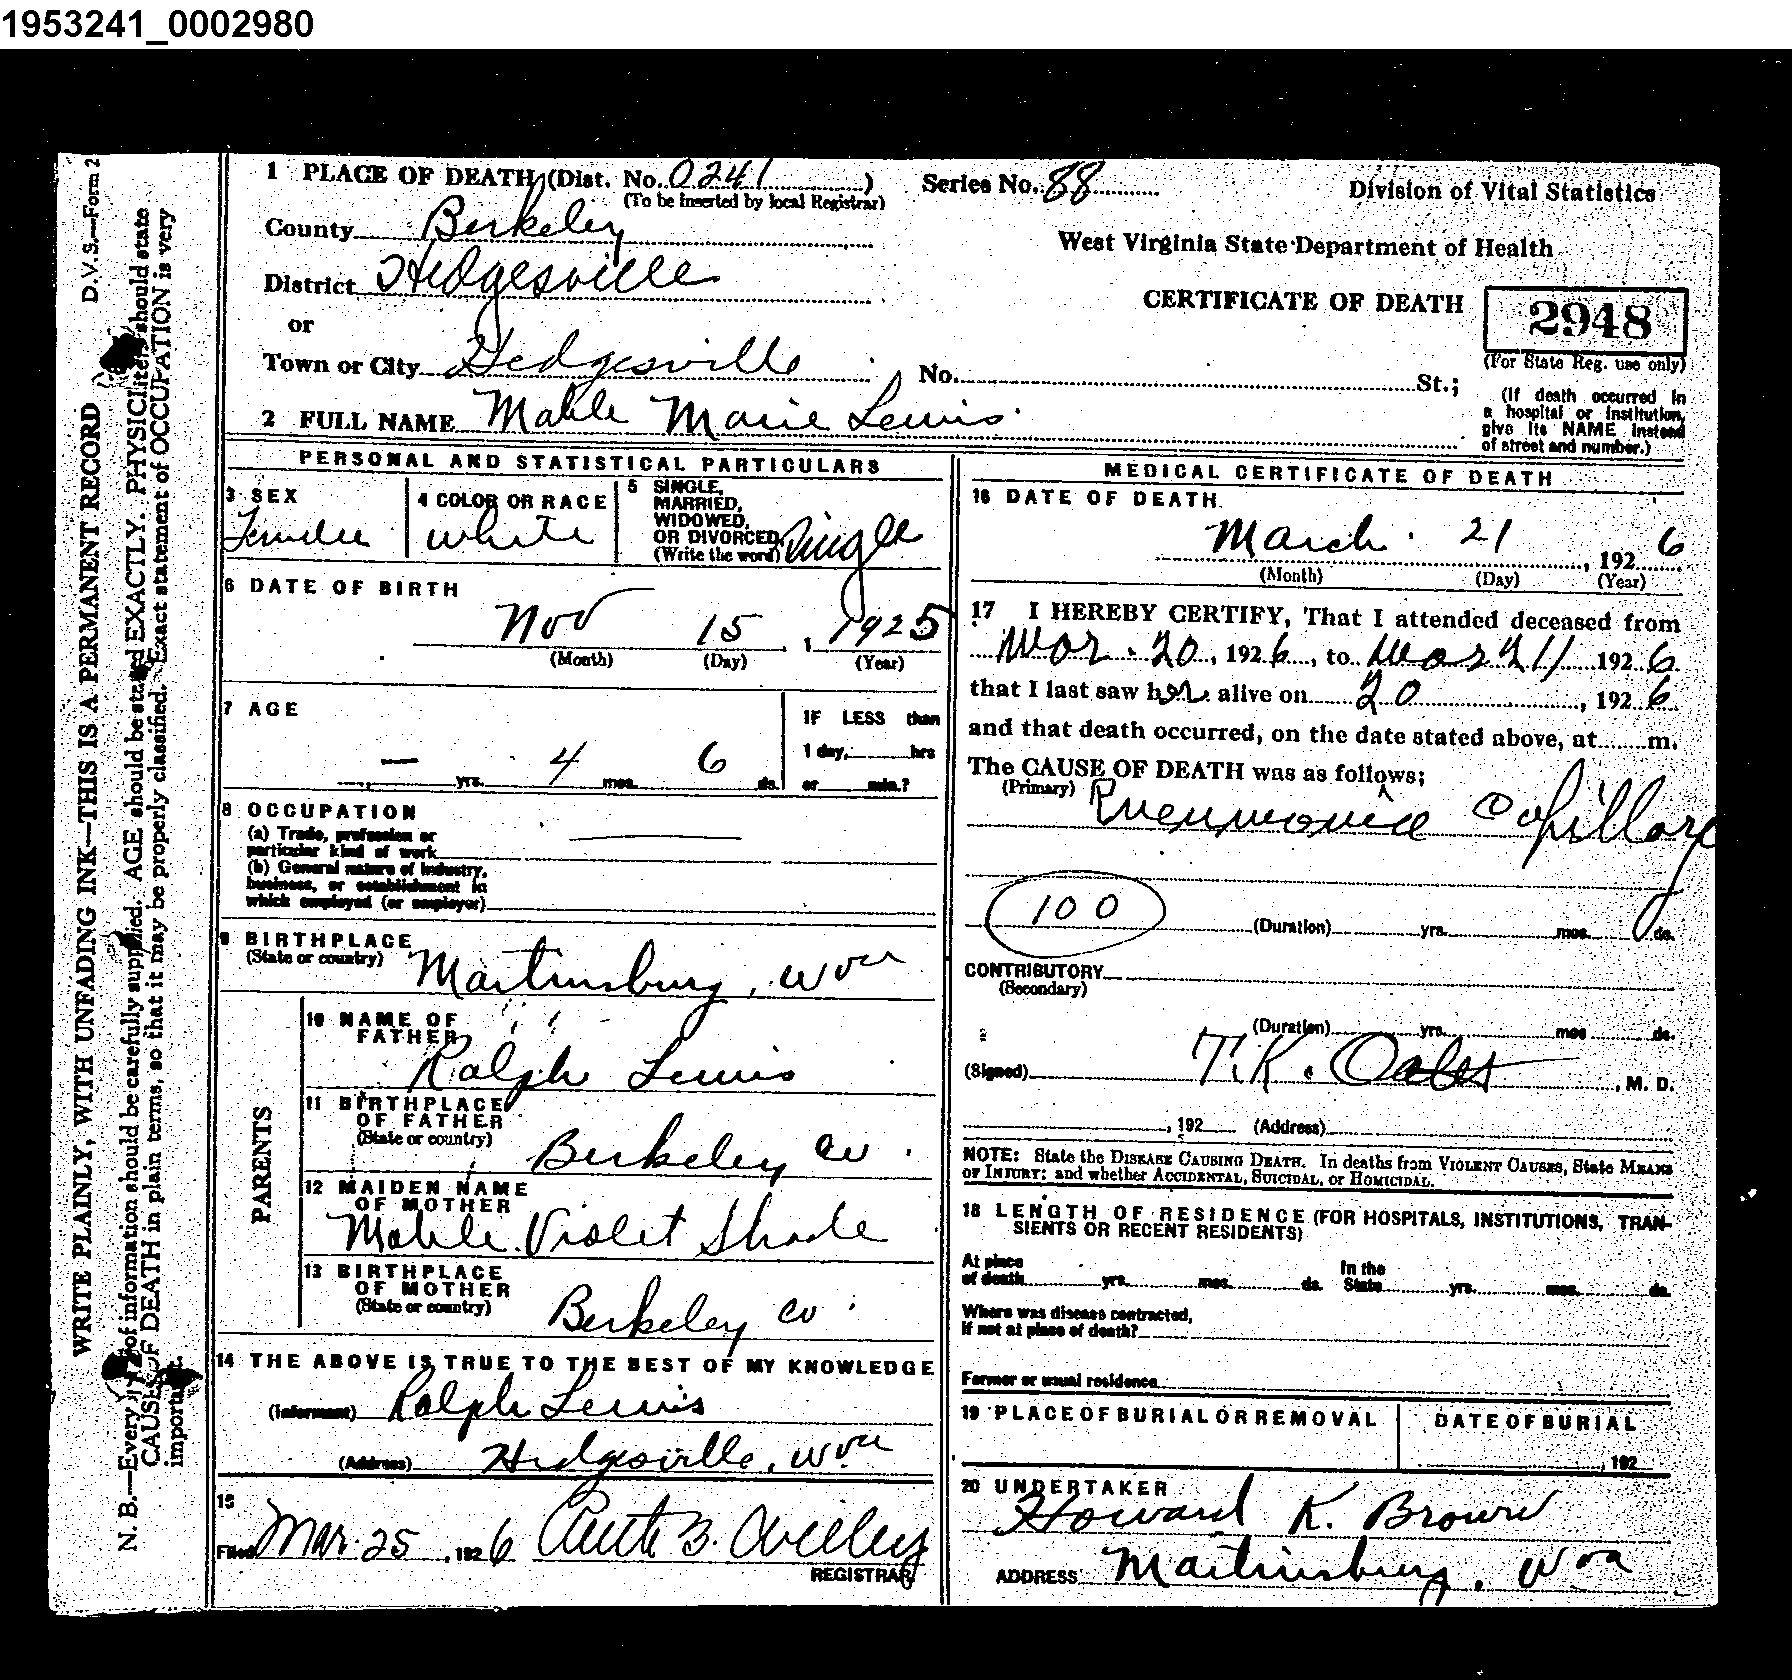 1953241_0002980
1 PLACE OF DEATH (Dist. No. 0241 ) Series No. 88 Division of Vital Statistics
(To be inserted by local Registrar)
County Berkeley
West Virginia State Department of Health
District Hedgesville
CERTIFICATE OF DEATH 2948
or
(For State Reg. use only)
Town or City Hedgesville No. St.;
(If death occurred in
a hospital or institution,
give its NAME instead
of street and number.)
2 FULL NAME Mable Marie Lewis
PERSONAL AND STATISTICAL PARTICULARS
3 SEX
Female
4 COLOR OR RACE
white
5 SINGLE,
MARRIED,
WIDOWED,
OR DIVORCED
(Write the word) Single
6 DATE OF BIRTH
Nov 15, 1925
(Month) (Day) (Year)
7 AGE
— yrs. 4 mos. 6 ds.
IF LESS than
1 day, hrs
or min.?
8 OCCUPATION
(a) Trade, profession or
particular kind of work
(b) General nature of industry,
business, or establishment in
which employed (or employer)
9 BIRTHPLACE
(State or country) Martinsburg, Wva
PARENTS
10 NAME OF
FATHER
Ralph Lewis
11 BIRTHPLACE
OF FATHER
(State or country) Berkeley co.
12 MAIDEN NAME
OF MOTHER
Mable Violet Shade
13 BIRTHPLACE
OF MOTHER
(State or country) Berkeley co.
14 THE ABOVE IS TRUE TO THE BEST OF MY KNOWLEDGE
(Informant) Ralph Lewis
(Address) Hedgesville, Wva
15
Filed Mar. 25, 1926 B.
REGISTRAR
MEDICAL CERTIFICATE OF DEATH
16 DATE OF DEATH
March 21, 1926
(Month) (Day) (Year)
17 I HEREBY CERTIFY, That I attended deceased from
Mar. 20, 1926, to Mar 21 1926
that I last saw her alive on 20, 1926
and that death occurred, on the date stated above, at m.
The CAUSE OF DEATH was as follows;
(Primary) Pneumonia Capillary
100 (Duration) yrs. mos. ds.
CONTRIBUTORY
(Secondary)
(Duration) yrs. mos. ds.
(Signed) T. K. Oates, M. D.
, 192 (Address)
NOTE: State the DISEASE CAUSING DEATH. In deaths from VIOLENT CAUSES, State MEANS
OF INJURY; and whether ACCIDENTAL, SUICIDAL, or HOMICIDAL.
18 LENGTH OF RESIDENCE (FOR HOSPITALS, INSTITUTIONS, TRAN-
SIENTS OR RECENT RESIDENTS)
At place
of death yrs. mos. ds.
In the
State yrs. mos. ds.
Where was disease contracted,
if not at place of death?
Former or usual residence
19 PLACE OF BURIAL OR REMOVAL
DATE OF BURIAL
, 192
20 UNDERTAKER
Howard K. Brown
ADDRESS Martinsburg, Wva
D.V.S.—Form 2
WRITE PLAINLY, WITH UNFADING INK—THIS IS A PERMANENT RECORD
N. B.—Every of information should be carefully supplied. AGE should be stated EXACTLY. PHYSICI should state
CAUSE OF DEATH in plain terms, so that it may be properly classified. Exact statement of OCCUPATION is very
important.